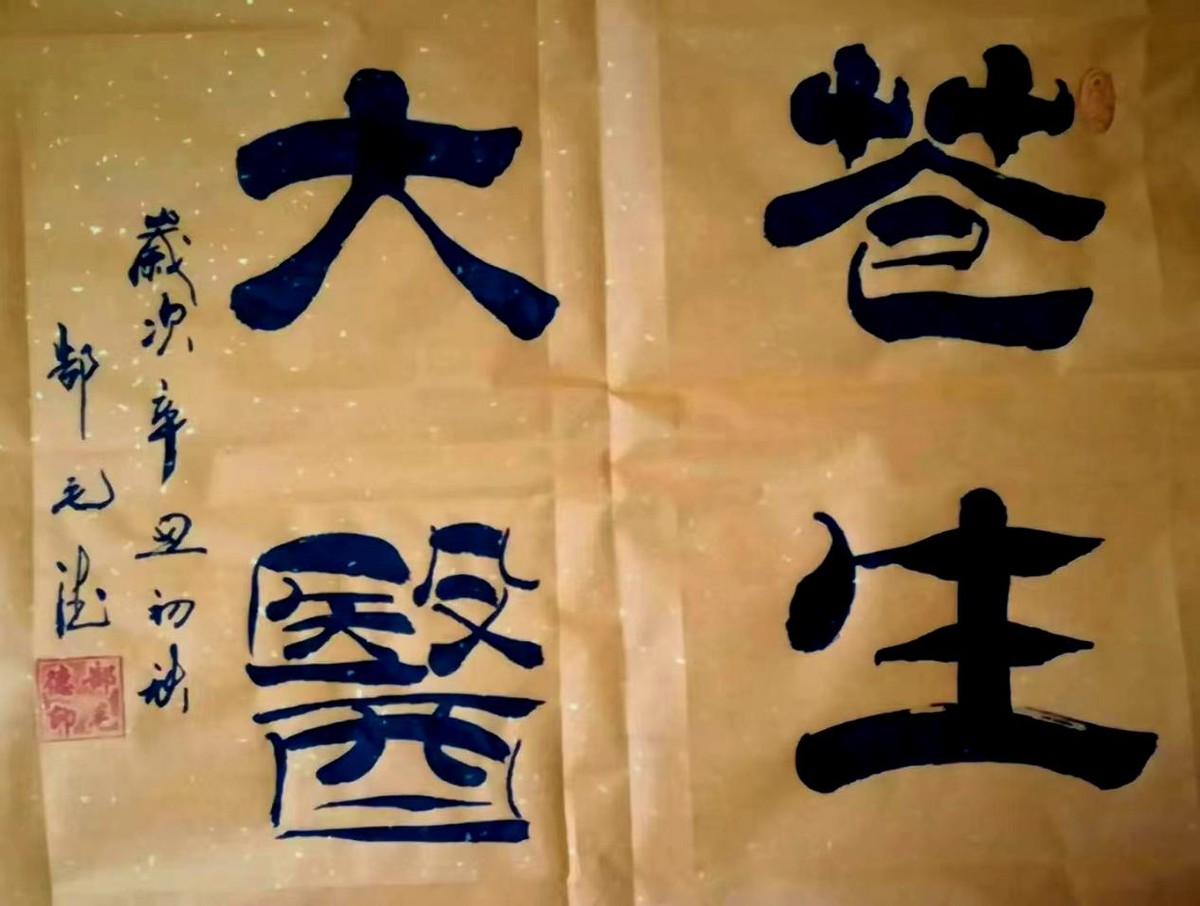 苍生
大醫
歲次辛丑初秋
郜毛德
郜毛德印